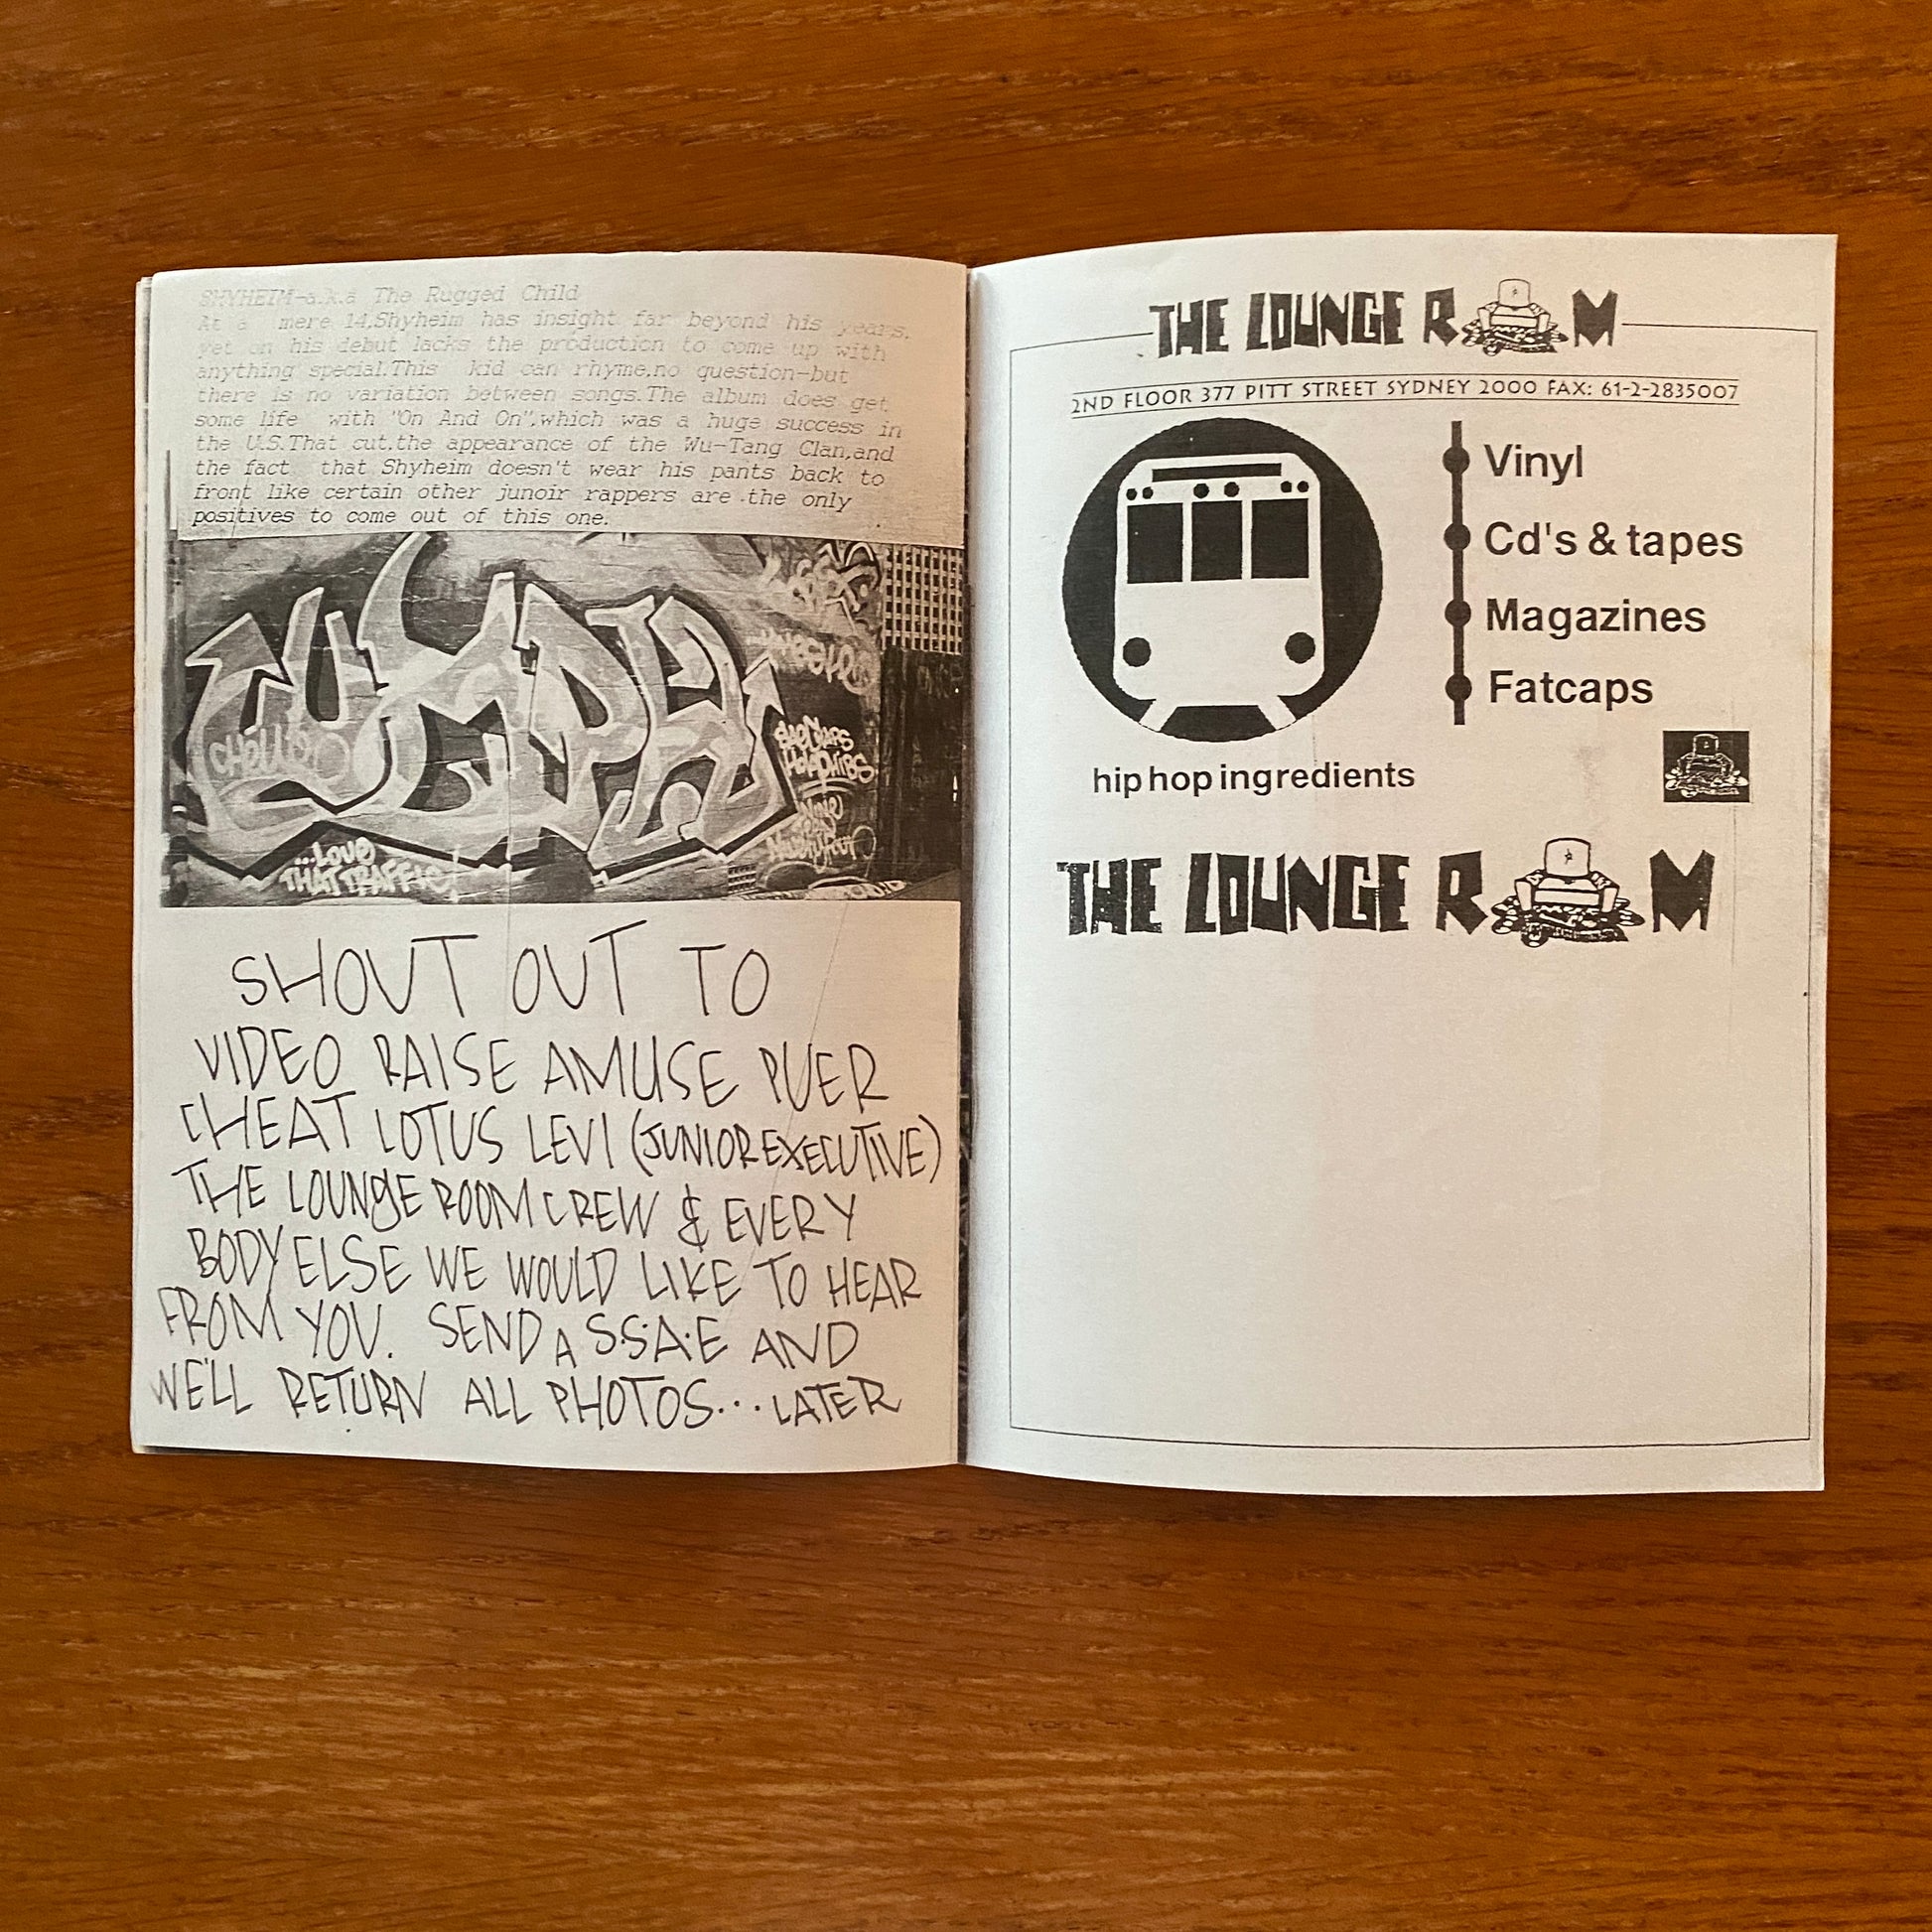 SHYHEIM-a.k.a The Rugged Child
At a mere 14,Shyheim has insight far beyond his years,
yet on his debut lacks the production to come up with
anything special.This kid can rhyme,no question-but
there is no variation between songs.The album does get
some life with "On And On",which was a huge success in
the U.S.That cut,the appearance of the Wu-Tang Clan,and
the fact that Shyheim doesn't wear his pants back to
front like certain other junoir rappers are the only
positives to come out of this one.
...LOVE
THAT TRAFFIC!
SHOUT OUT TO
VIDEO RAISE AMUSE PUER
CHEAT LOTUS LEVI (JUNIOR EXECUTIVE)
THE LOUNGE ROOM CREW & EVERY
BODY ELSE WE WOULD LIKE TO HEAR
FROM YOU. SEND A S.S.A.E AND
WE'LL RETURN ALL PHOTOS... LATER
THE LOUNGE ROOM
2ND FLOOR 377 PITT STREET SYDNEY 2000 FAX: 61-2-2835007
Vinyl
Cd's & tapes
Magazines
Fatcaps
hip hop ingredients
THE LOUNGE ROOM